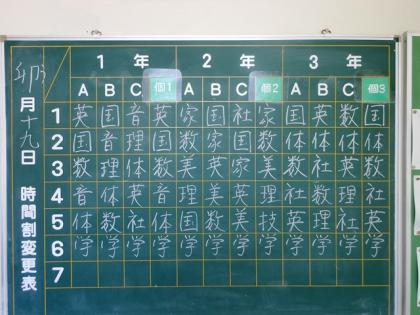 卯月十九日 時間割変更表
1年 2年 3年
A B C 個1 A B C 個2 A B C 個3
1 英 国 音 英 家 国 社 家 国 英 数 国
2 国 音 理 国 数 家 国 数 体 体 体 体
3 数 理 体 数 美 英 家 美 数 社 英 数
4 音 体 英 音 英 美 英 理 社 数 理 社
5 体 数 社 体 国 数 美 技 英 理 社 英
6 学 学 学 学 学 学 学 学 学 学 学 学
7